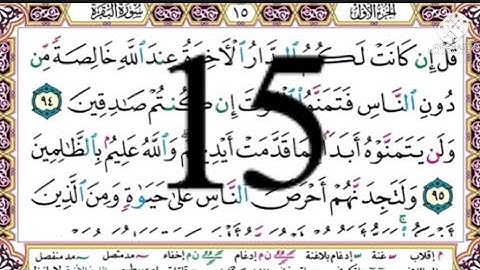 الجزء الأول
١٥
سورة البقرة
قُلْ إِن كَانَتْ لَكُمُ الدَّارُ الْأَخِرَةُ عِندَ اللَّهِ خَالِصَةً مِّن
دُونِ النَّاسِ فَتَمَنَّوُا الْمَوْتَ إِن كُنتُمْ صَادِقِينَ ٩٤
وَلَن يَتَمَنَّوْهُ أَبَدًا بِمَا قَدَّمَتْ أَيْدِيهِمْ وَاللَّهُ عَلِيمٌ بِالظَّالِمِينَ
٩٥ وَلَتَجِدَنَّهُمْ أَحْرَصَ النَّاسِ عَلَىٰ حَيَوٰةٍ وَمِنَ الَّذِينَ
15
م إقلاب س غنة إدغام بلاغنة ن م إدغام ن م إخفاء مد متصل مد منفصل